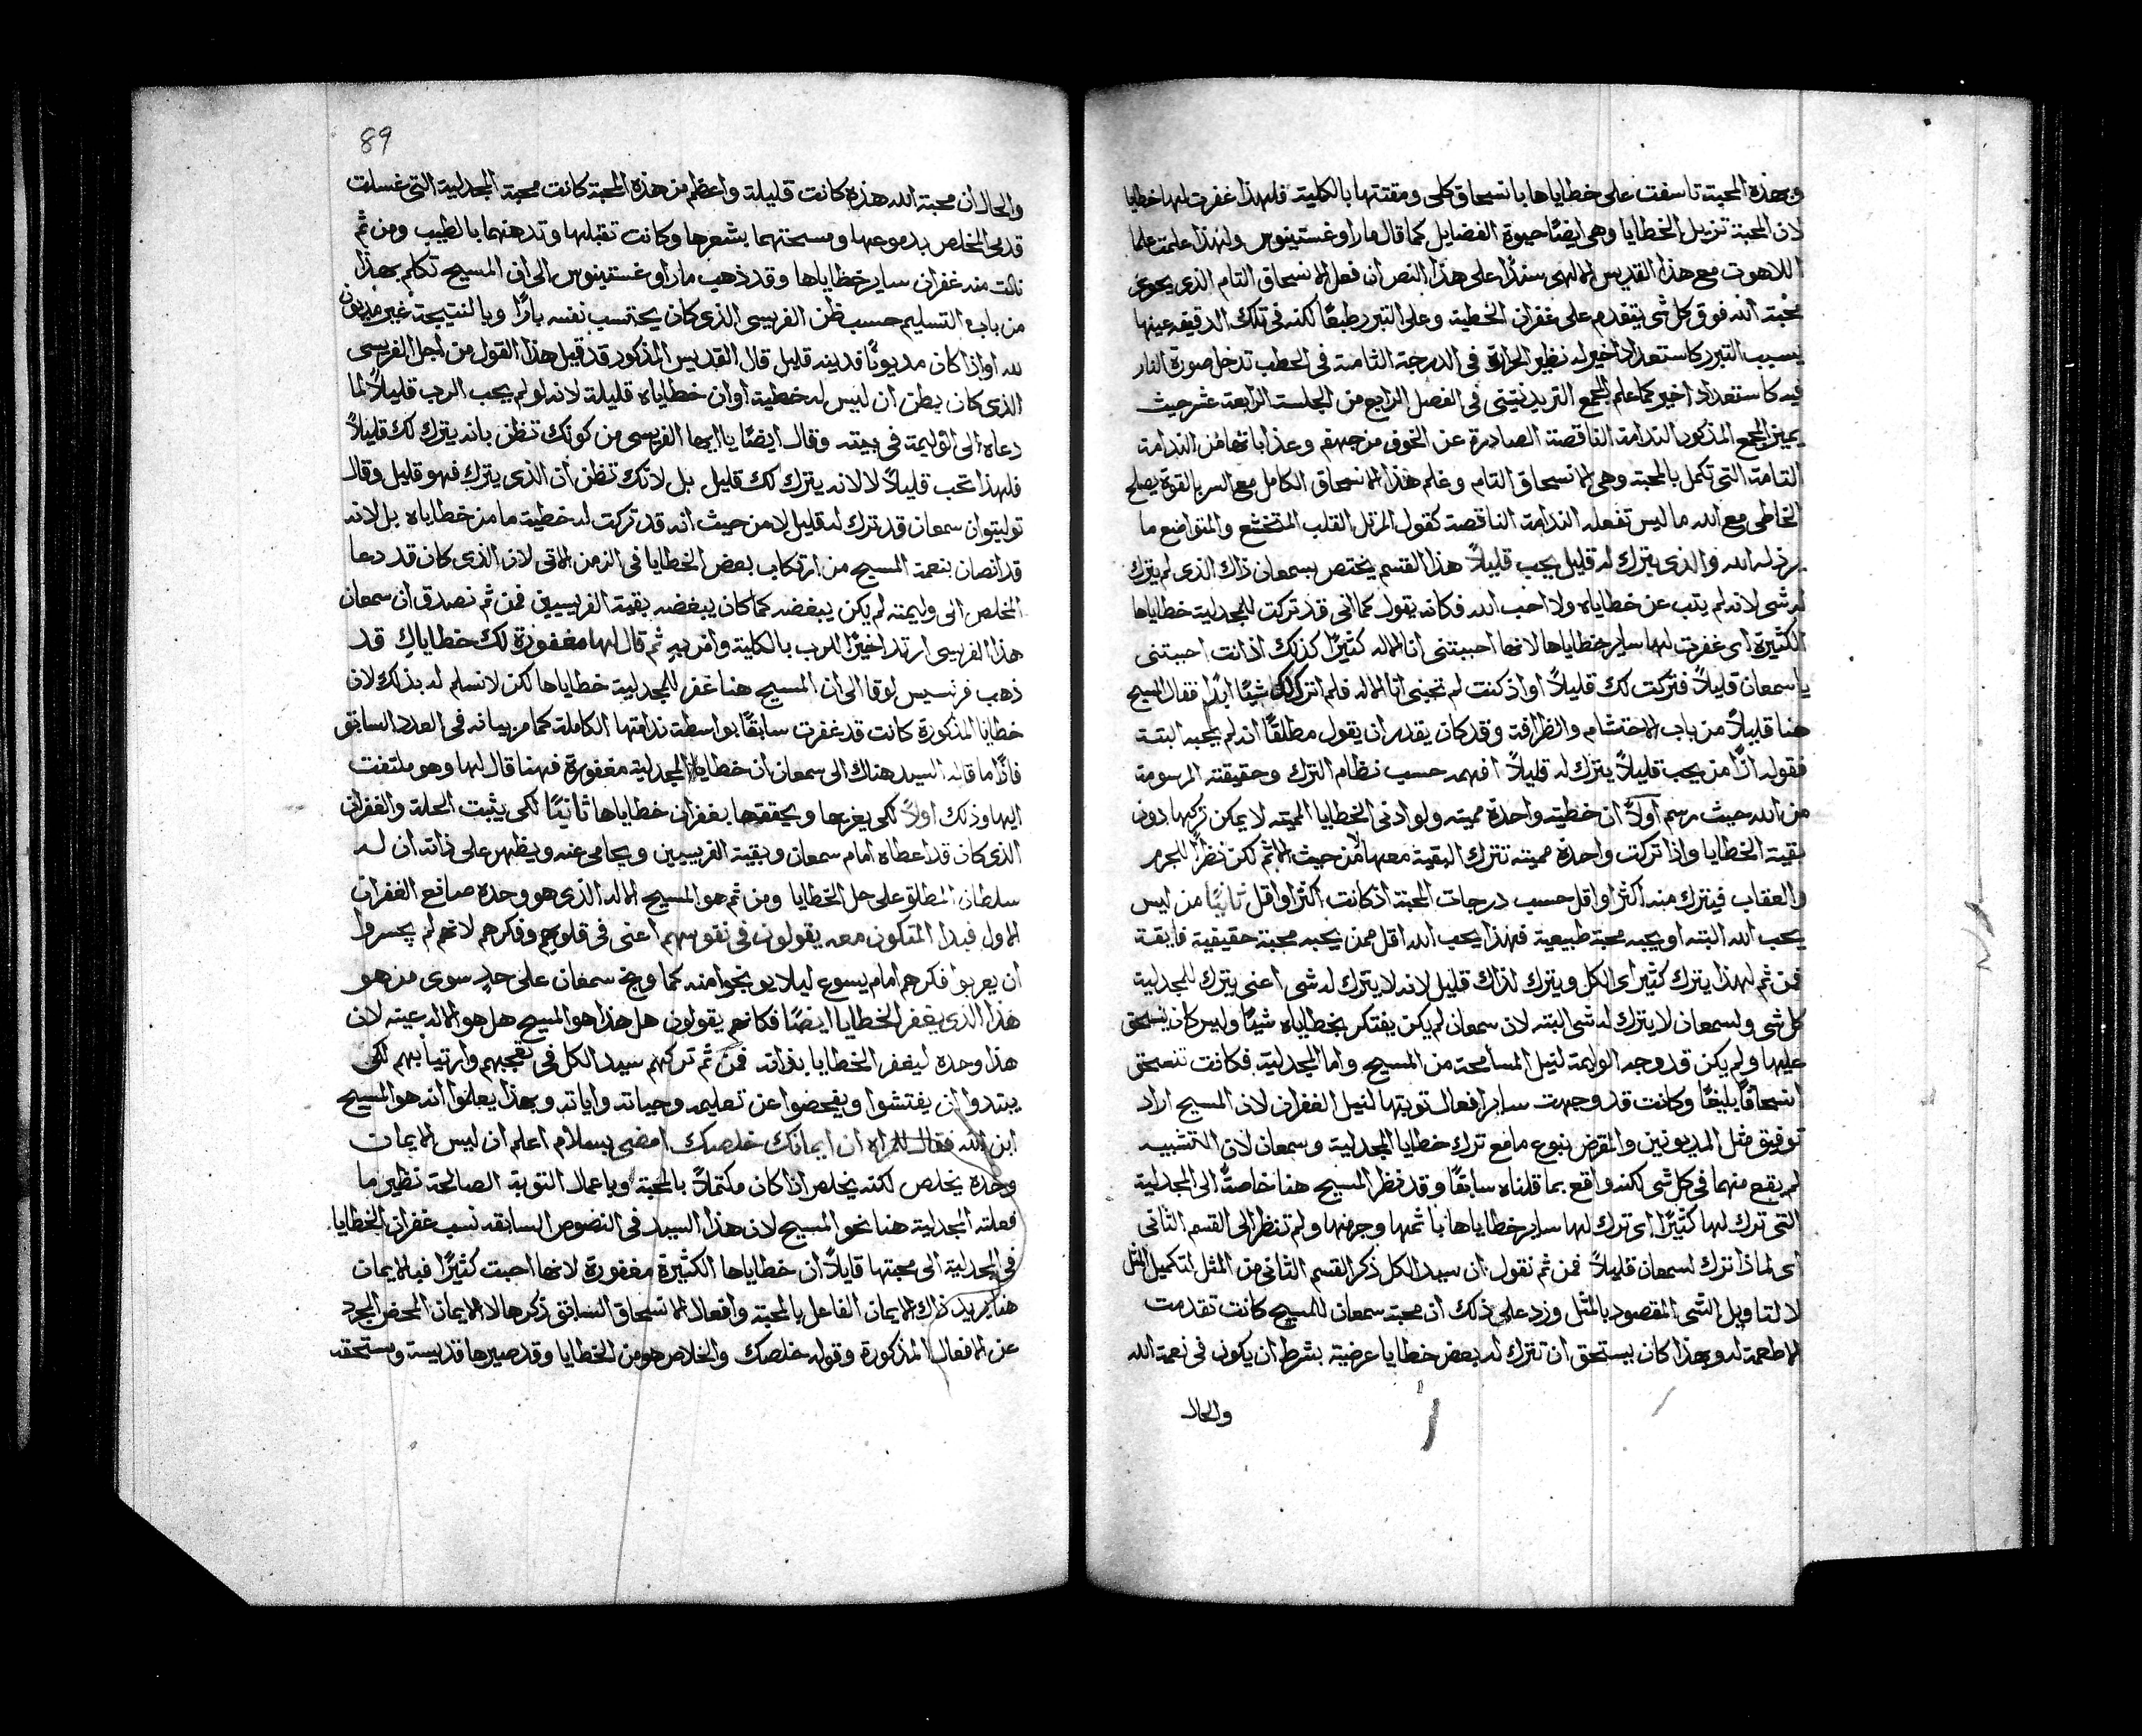 وبهذه المحبة تاسفت على خطاياها بانسحاق كلي ومقتتها بالكلية فلهذا غفرت لها خطايا
لان المحبة تزيل الخطايا وهي ايضًا حيوة الفضايل كما قال ماراوغستينوس ولهذا علمت علما
اللاهوت مع هذا القديس الالهي سندًا على هذا النص ان فعل الانسحاق التام الذي يحوي
محبة الله فوق كل شي يتقدم على غفران الخطية وعلى التبرر طبعًا لكنه في تلك الدقيقه عينها
يسبب التبرر كاستعداد اخير له نظير الحرارة في الدرجة الثامنة في الحطب تدخل صورة النار
فيه كاستعداد اخير كما علم المجمع التريدنتيني في الفصل الرابع من الجلسة الرابعة عشر حيث
يميز المجمع المذكور الندامة الناقصة الصادرة عن الخوف من جهنم وعذاباتها من الندامة
التامة التي تكمل بالمحبة وهي الانسحاق التام وعلم هذا الانسحاق الكامل مع السر بالقوة يصلح
الخاطي مع الله ما ليس تفعله الندامة الناقصة كقول المرتل القلب المتخشع والمتواضع ما
يرذله الله والذي يترك له قليل يحب قليلاً هذا القسم يختص بسمعان ذاك الذي لم يترك
له شي لانه لم يتب عن خطاياه ولا احب الله فكانه يقول كما اني قد تركت للمجدلية خطاياها
الكثيرة اي غفرت لها ساير خطاياها لانها احببتني انا الاله كثيرًا كذلك اذ انت احببتني
يا سمعان قليلاً فتركت لك قليلاً او اذ كنت لم تحبني انا الاله فلم اترك لك شيًا ابدًا فقال المسيح
هنا قليلاً من باب الاحتشام والظرافة وقد كان يقدر ان يقول مطلقًا انه لم يحبه البتة
فقوله اذًا من يحب قليلاً يترك له قليلاً افهمه حسب نظام الترك وحقيقته المرسومة
من الله حيث رسم اولاً ان خطية واحدة مميته ولو ادنى الخطايا المميته لا يمكن تركها دون
بقية الخطايا واذا تركت واحدة مميته تترك البقية معها من حيث الاثم لكن نظرًا للجرم
والعقاب فيترك منه اكثر او اقل حسب درجات المحبة اذ كانت اكثر او اقل ثانيًا من ليس
يحب الله البته او يحبه محبة طبيعية فهذا يحب الله اقل ممن يحبه محبة حقيقية فايقة
فمن ثم لهذا يترك كثير اي الكل ويترك لذاك قليل لانه لا يترك له شي اعني يترك للمجدلية
كل شي ولسمعان لا يترك له شي البته لان سمعان لم يكن يفتكر بخطاياه شيًا وليس كان يسحق
عليها ولم يكن قد وجه الوليمة لنيل المسامحة من المسيح واما المجدلية فكانت تنسحق
انسحاقًا بليغًا وكانت قد وجهت ساير افعال توبتها لنيل الغفران لان المسيح اراد
توفيق مثل المديونين والمقرض بنوع ما مع ترك خطايا المجدلية وسمعان لان التشبيه
لم يقع منهما في كل شي لكنه واقع بما قلناه سابقًا وقد نظر المسيح هنا خاصةً الى المجدلية
التي ترك لها كثيرًا اي ترك لها ساير خطاياها باثمها وجرمها ولم تنظر الى القسم الثاني
اي لماذا ترك لسمعان قليلاً فمن ثم نقول ان سيد الكل ذكر القسم الثاني من المثل لتكميل المثل
لا لتاويل الشي المقصود بالمثل وزد على ذلك ان محبة سمعان للمسيح كانت تقدمت
الاطعمة له وبهذا كان يستحق ان تترك له بعض خطايا عرضية بشرط ان يكون في نعمة الله
والحال
89
والحال ان محبة الله هذه كانت قليلة واعظم من هذه المحبة كانت محبة المجدلية التي غسلت
قدمي المخلص بدموعها ومسحتهما بشعرها وكانت تقبلها وتدهنهما بالطيب ومن ثم
نالت منه غفران ساير خطاياها وقد ذهب ماراوغستينوس الى ان المسيح تكلم بهذا
من باب التسليم حسب ظن الفريسي الذي كان يحتسب نفسه بارًا وبالنتيجة غير مديون
لله او اذا كان مديونًا فدينه قليل قال القديس المذكور قد قيل هذا القول من اجل الفريسي
الذي كان يظن ان ليس له خطية او ان خطاياه قليلة لانه لو لم يحب الرب قليلاً لما
دعاه الى الوليمة في بيته وقال ايضًا يا ايها الفريسي من كونك تظن بانه يترك لك قليلاً
فلهذا تحب قليلاً لا لانه يترك لك قليل بل لانك تظن ان الذي يترك فهو قليل وقال
توليتوان سمعان قد ترك له قليل لا من حيث انه قد تركت له خطية ما من خطاياه بل لانه
قد انصان بنعمة المسيح من ارتكاب بعض الخطايا في الزمن الاتي لان الذي كان قد دعا
المخلص الى وليمته لم يكن يبغضه كما كان يبغضه بقية الفريسيين فمن ثم نصدق ان سمعان
هذا الفريسي ارتد اخيرًا للرب بالكلية وامن به ثم قال لها مغفورة لك خطاياك قد
ذهب فرنسيس لوقا الى ان المسيح هنا غفر للمجدلية خطاياها لكن لا نسلم له بذلك لان
خطايا المذكورة كانت قد غفرت سابقًا بواسطة ندامتها الكاملة كما مر بيانه في العدد السابق
فاذًا ما قاله السيد هناك الى سمعان ان خطايا المجدلية مغفورة فهنا قال لها وهو ملتفت
اليها وذلك اولاً لكي يفرحها ويحققها بغفران خطاياها ثانيًا لكي يثبت الحلة والغفران
الذي كان قد اعطاه امام سمعان وبقية الفريسيين ويحامي عنه ويظهر على ذاته ان له
سلطان المطلق على حل الخطايا ومن ثم هو المسيح الاله الذي هو وحده صانع الغفران
الاول فبدا المتكون معه يقولون في نفوسهم اعني في قلوبهم وفكرهم لانهم لم يجسروا
ان يعربوا فكرهم امام يسوع ليلا يوبخوا منه كما وبخ سمعان على حدٍ سوى من هو
هذا الذي يغفر الخطايا ايضًا فكانهم يقولون هل هذا هو المسيح هل هو الاله عينه لان
هذا وحده ليغفر الخطايا بذاته فمن ثم تركهم سيد الكل في تعجبهم وارتيابهم لكي
يبتدوا ان يفتشوا ويفحصوا عن تعليمه وحياته واياته وبهذا يعلموا انه هو المسيح
ابن الله فقال للمراه ان ايمانك خلصك امضي بسلام اعلم ان ليس الايمان
وحده يخلص لكنه يخلص اذا كان مكتملاً بالمحبة وباعمال التوبة الصالحة نظير ما
فعلته المجدلية هنا نحو المسيح لان هذا السيد في النصوص السابقه نسب غفران الخطايا
في المجدلية الى محبتها قايلاً ان خطاياها الكثيرة مغفورة لانها احبت كثيرًا فبالايمان
هنا يريد ذاك الايمان الفاعل بالمحبة وافعال الانسحاق السابق ذكرها لا الايمان المحض المجرد
عن الافعال المذكورة وقوله خلصك والخلاص هو من الخطايا وقد صيرها قديسة ومستحقه